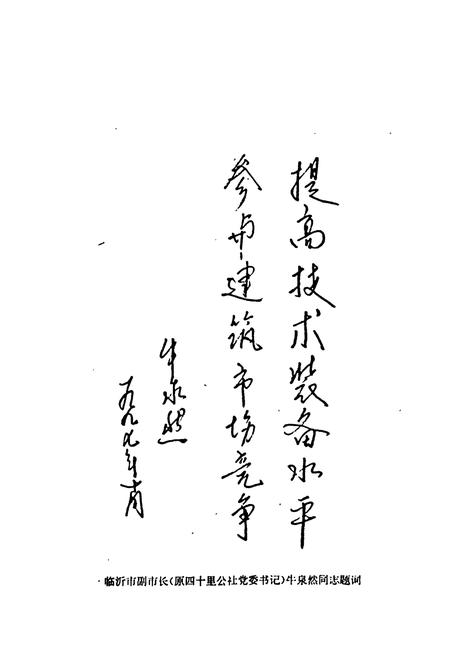 提高技术装备水平
参与建筑市场竞争
牛泉然
一九九七年 月
临沂市副市长(原四十里公社党委书记)牛泉然同志题词